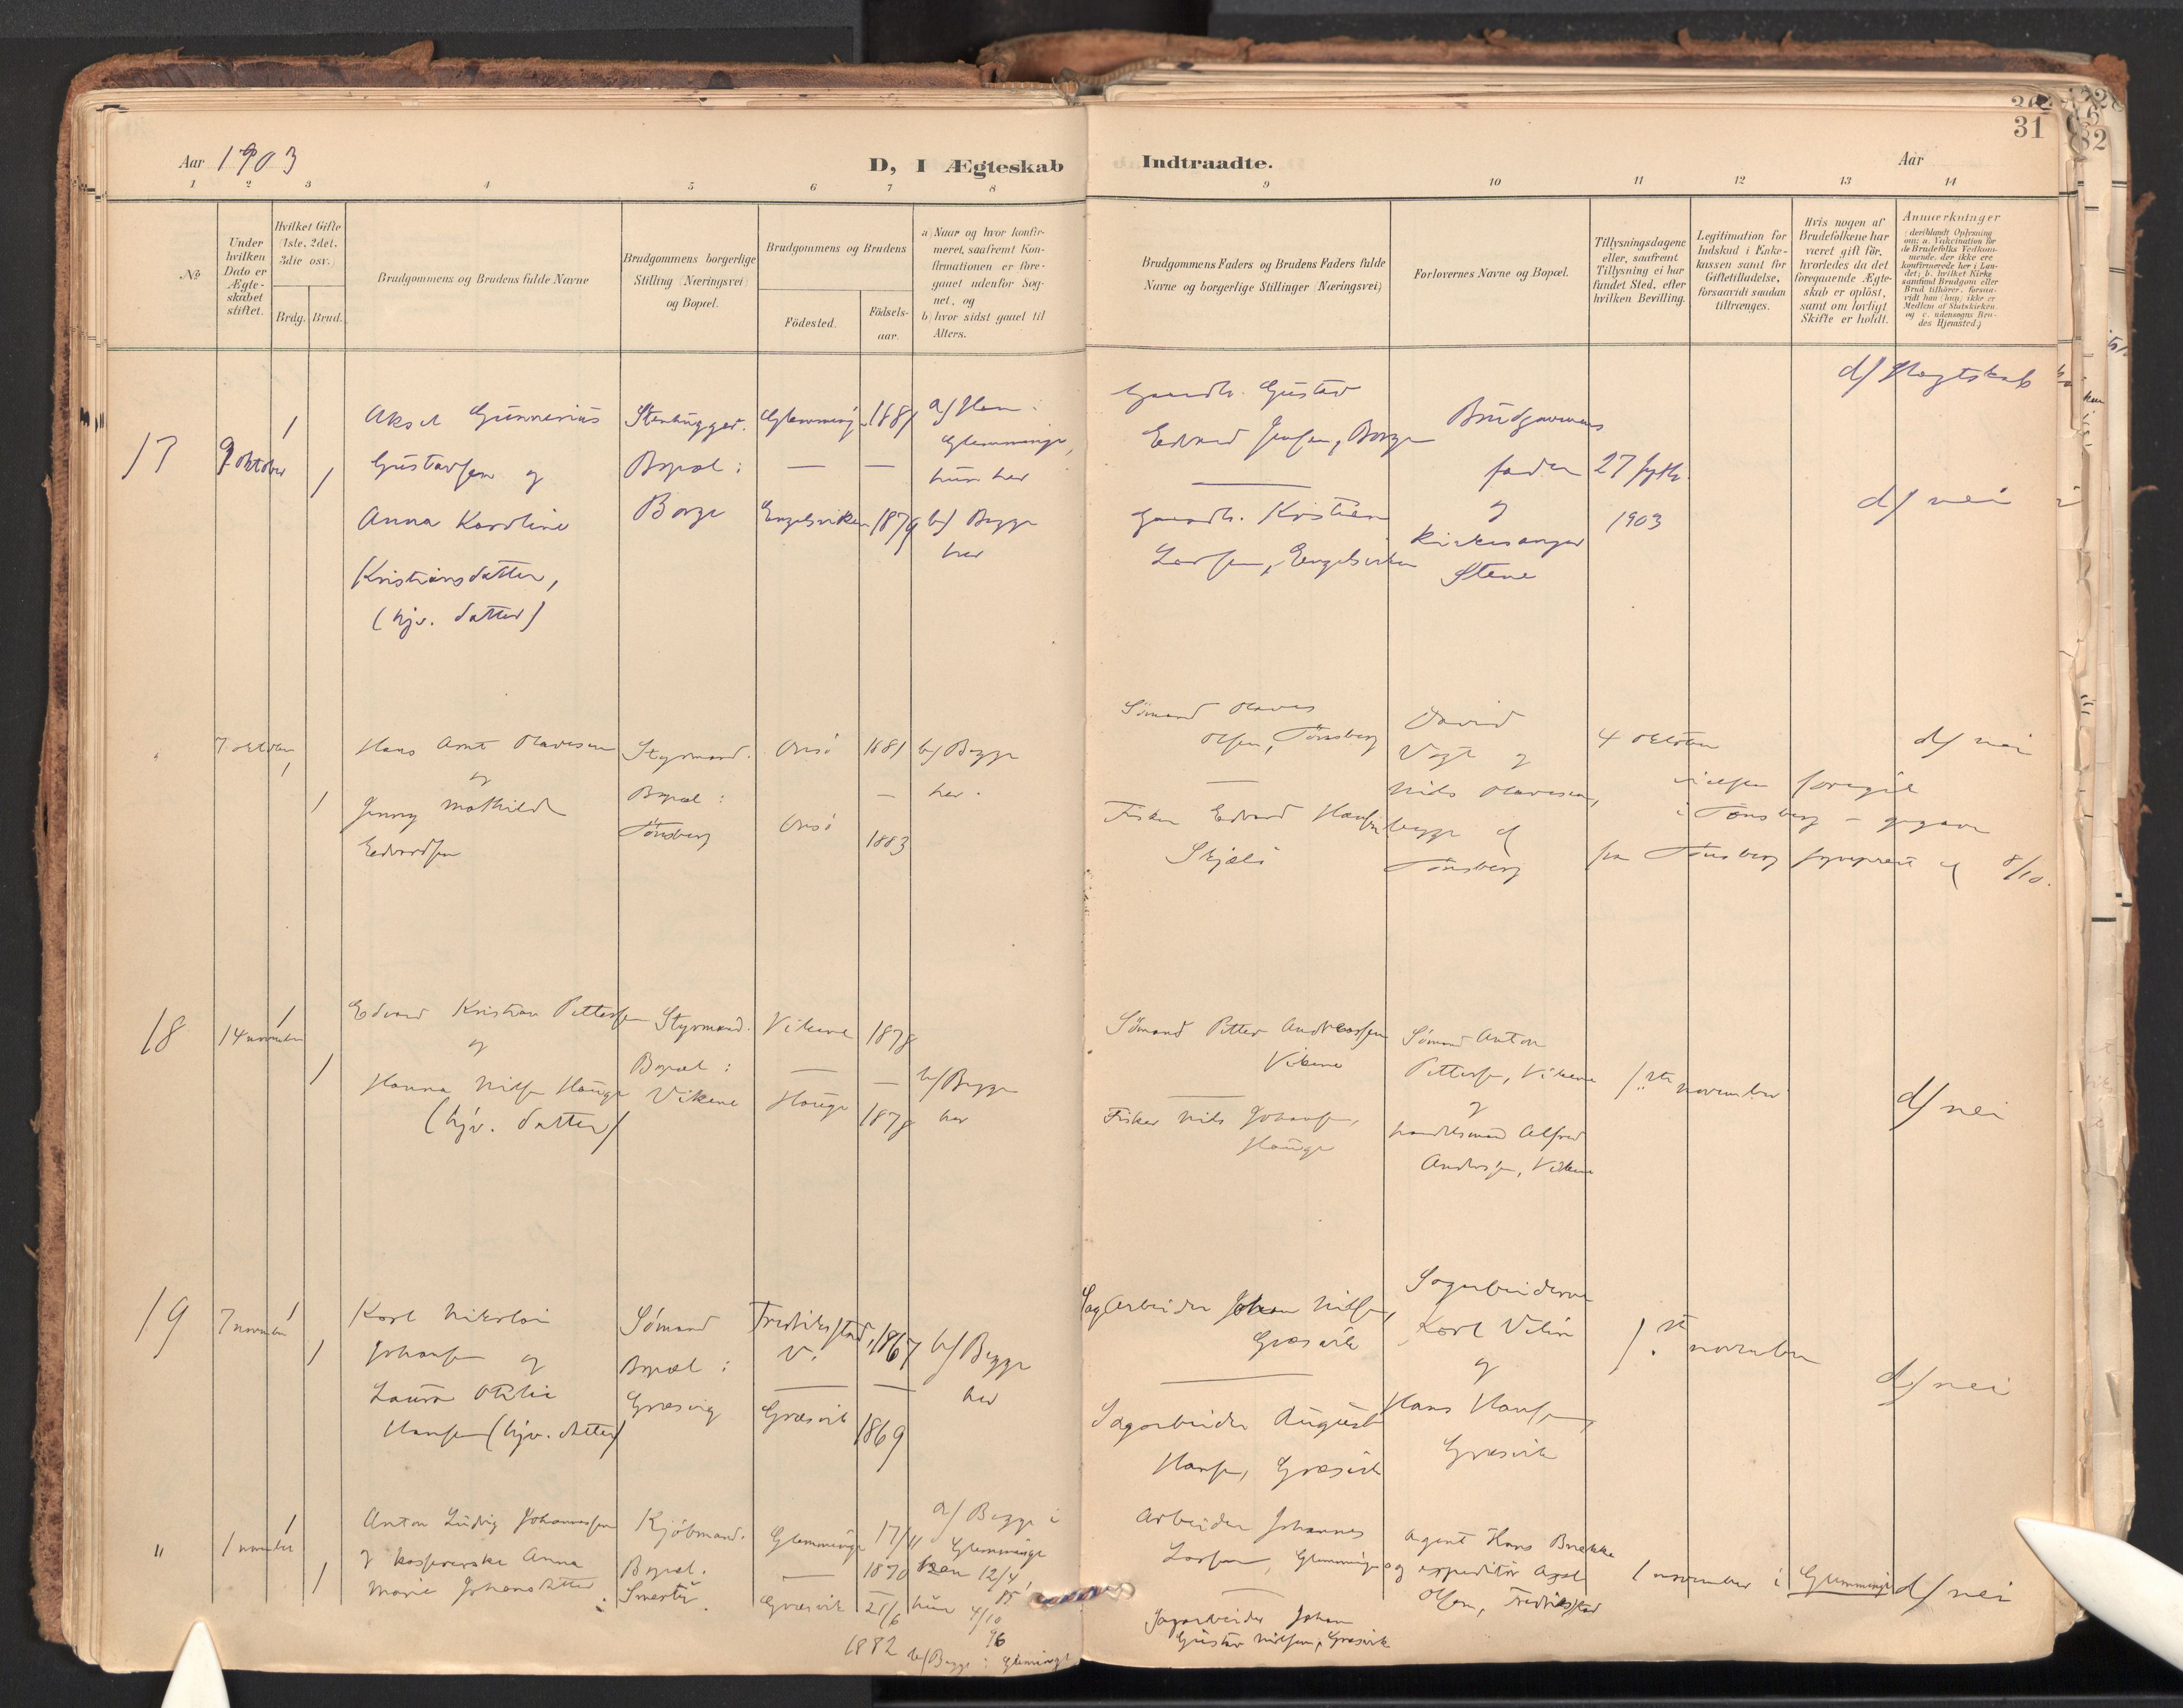 Aar 1903
D, I Ægteskab
Indtraadte.
Aar
31
1 2 3 4 5 6 7 8 9 10 11 12 13 14
No
Under hvilken Dato er Ægteskabet stiftet.
Hvilket Gifte (1ste, 2det, 3die osv.)
Brdg. Brud.
Brudgommens og Brudens fulde Navne
Brudgommens borgerlige Stilling (Næringsvei) og Bopæl.
Brudgommens og Brudens
Födested.
Födsels-aar.
a) Naar og hvor konfirmeret, saafremt Konfirmationen er foregaaet udenfor Sognet, og
b) hvor sidst gaaet til Alters.
Brudgommens Faders og Brudens Faders fulde Navne og borgerlige Stillinger (Næringsvei)
Forlovernes Navne og Bopæl.
Tillysningsdagene eller, saafremt Tillysning ei har fundet Sted, efter hvilken Bevilling.
Legitimation for Indskud i Enkekassen samt for Giftetilladelse, forsaavidt saadan tiltrænges.
Hvis nogen af Brudefolkene har været gift för, hvorledes da det foregaaende Ægteskab er oplöst, samt om lovligt Skifte er holdt.
Anmerkninger
(deriblandt Oplysning om: a. Vakcination for de Brudefolks Vedkommende, der ikke ere konfirmerede her i Landet; b. hvilket Kirkesamfund Brudgom eller Brud tilhörer, forsaavidt han (hun) ikke er Medlem af Statskirken og c. udensogns Brudes Hjemsted.)
17
9 oktober
1
1
Aksel Gunnerius
Gustavsen og
Anna Karoline
Kristiansdatter,
(hjv. datter)
Stenhugger.
Bopæl:
Borge
Glemminge
—
Engelsviken
1881
—
1879
a/ Han i
Glemminge,
hun her
b/ Begge
her
Gaardb. Gustav
Edvard Jensen, Borge
Gaardb. Kristian
Larsen, Engelsviken
Brudgommens
fader
og
Kirkesanger
Stene
27 septb.
1903
d/ Slegtskab
d/ nei
7 oktober
1
1
Hans Arnt Olavesen
og
Jenny Mathilde
Edvardsen
Styrmand.
Bopæl:
Tønsberg
Onsö
Onsö
1881
—
1883
b/ Begge
her.
Sömand Olaves
Olsen, Tönsberg
—
Fisker Edvard Hansen
Skjælö
David
Vogt og
Nils Olavesen,
begge af
Tönsberg
4 oktober
d/ nei
vielsen foregik
i Tønsberg –
fra Tønsberg sogneprest af 8/10.
18
14 november
1
1
Edvard Kristian Pettersen
og
Hanna Nilsen Hauge
(hjv. datter)
Styrmand.
Bopæl:
Vikene
Vikene
—
Hauge
1878
—
1878
b/ Begge
her
Sömand Petter Andreassen
Vikene
Fisker Nils Johansen,
Hauge
Sömand Anton
Pettersen, Vikene
og
handelsmand Alfred
Andersen, Vikene
1ste november
d/ nei
19
7 november
1
1
Karl Nikolai
Johansen og
Laura Otilie
Hansen (hjv. datter)
Sömand
Bopæl:
Græsvig
Fredrikstad,
V.
—
Græsvik
1867
—
1869
b/ Begge
her
Sagarbeider Johan Nilsen,
Græsvik
Sagarbeider August
Hansen, Græsvik
Sagarbeiderne
Karl Velin
og
Hans Hansen,
Græsvik
1ste november
d/ nei
"
1 november
1
1
Anton Ludvig Johannessen
og kassererske Anna
Marie Johansdatter
Kjöbmand.
Bopæl.
Smertu.
Glemminge
—
Græsvik
17/11
1870
25/6
1882
a/ Begge i
Glemminge
han 12/4 85,
hun 4/10 96
b/ Begge i Glemminge
Arbeider Johannes
Larsen, Glemminge
—
Sagarbeider Johan
Gustav Nilsen, Græsvik
Agent Hans Brække
og expeditör Axel
Olsen, Fredrikstad
1 november i Glemminge
d/ nei